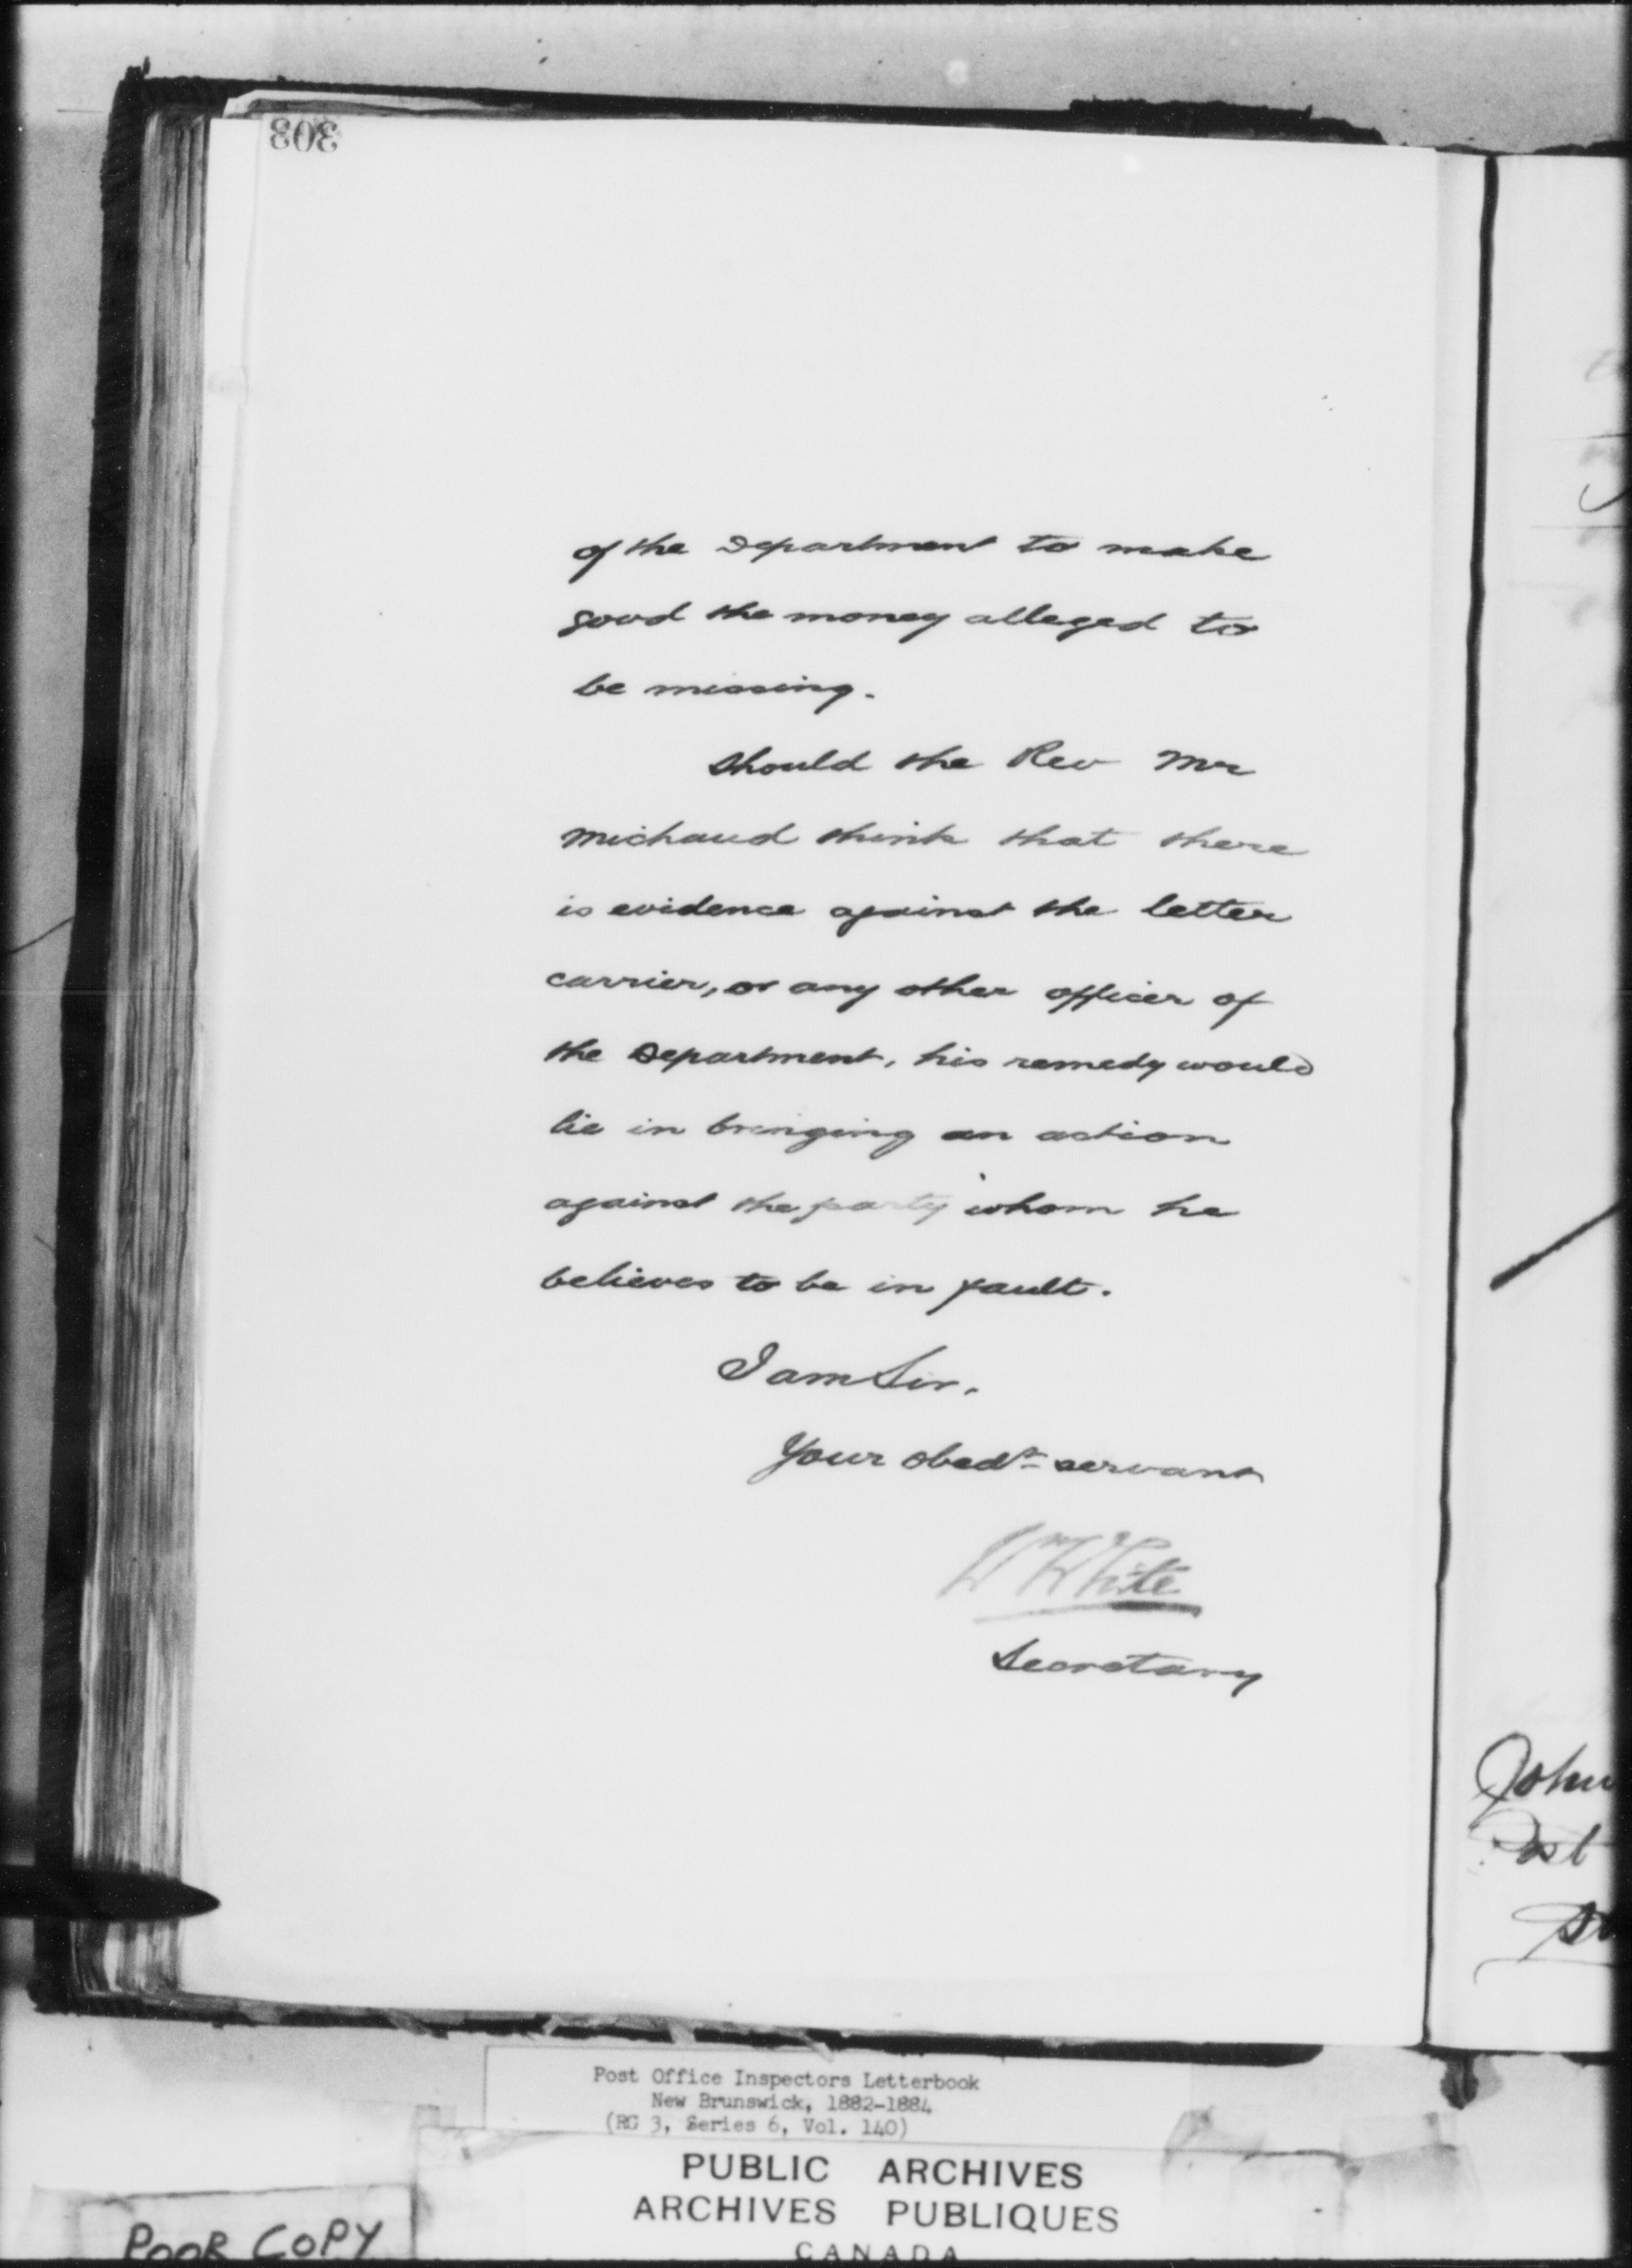 303
of the Department to make
good the money alleged to
be missing.
Should the Rev Mr
Michaud think that there
is evidence against the letter
carrier, or any other officer of
the Department, his remedy would
lie in bringing an action
against the party whom he
believes to be in fault.
I am Sir,
Your obedt servant
Wm White
Secretary
John
Post
Post Office Inspectors Letterbook
New Brunswick, 1882-1884
(RG 3, Series 6, Vol. 140)
PUBLIC ARCHIVES
ARCHIVES PUBLIQUES
CANADA
POOR COPY